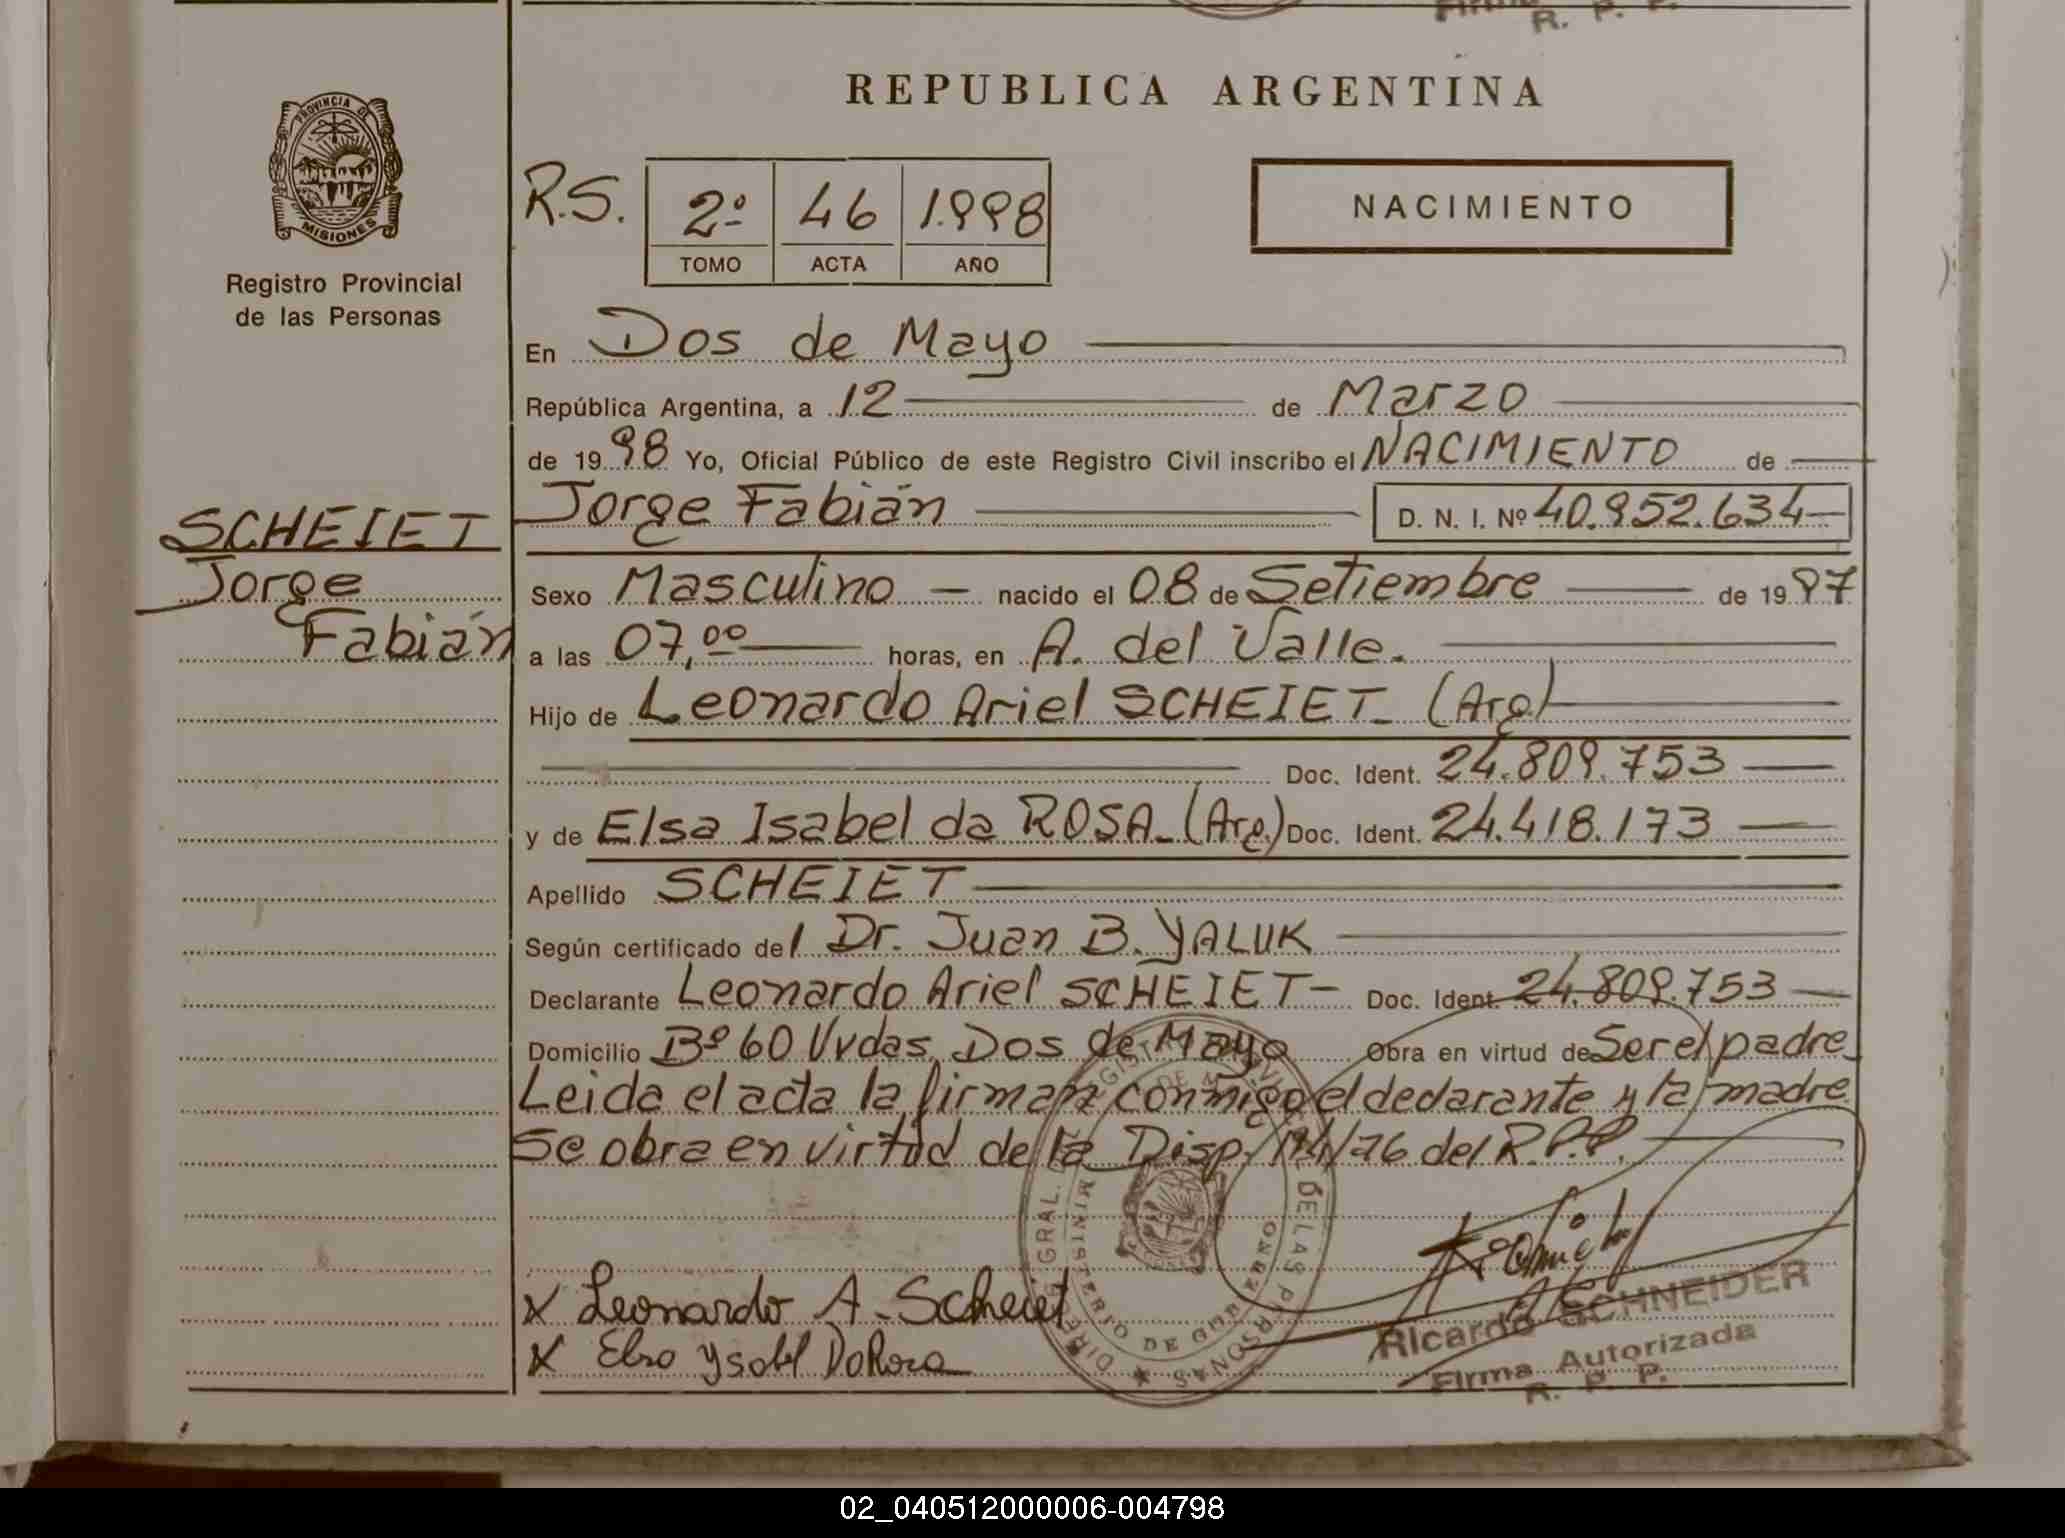 Firma
R. P. P.
PROVINCIA DE
MISIONES
Registro Provincial
de las Personas
REPUBLICA ARGENTINA
R.S. 2º 46 1.998
TOMO ACTA AÑO
NACIMIENTO
En Dos de Mayo
República Argentina, a 12 de Marzo
de 1998 Yo, Oficial Público de este Registro Civil inscribo el NACIMIENTO de
Jorge Fabián D. N. I. Nº 40.952.634
SCHEIET
Jorge
Fabián
Sexo Masculino nacido el 08 de Setiembre de 1997
a las 07,00 horas, en A. del Valle.
Hijo de Leonardo Ariel SCHEIET (Arg)
Doc. Ident. 24.809.753
y de Elsa Isabel da ROSA (Arg.) Doc. Ident. 24.418.173
Apellido SCHEIET
Según certificado del Dr. Juan B. YALUK
Declarante Leonardo Ariel SCHEIET Doc. Ident. 24.809.753
Domicilio Bº 60 Vvdas, Dos de Mayo Obra en virtud de Ser el padre
Leida el acta la firman conmigo el declarante y la madre
Se obra en virtud de la Disp. 14/76 del R.P.P.
DIREC. GRAL. DE LAS PERSONAS
MINISTERIO DE GOBIERNO
X Leonardo A. Scheiet
X Elsa Ysabel DaRosa
Ricardo SCHNEIDER
Firma Autorizada
R. P. P.
02_040512000006-004798